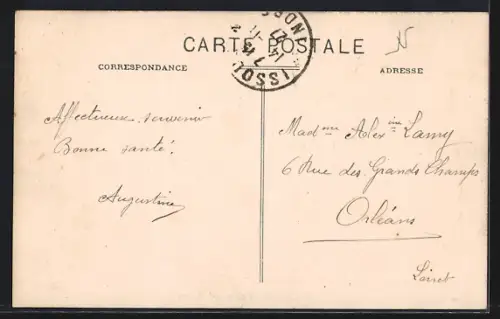 CARTE POSTALE
CORRESPONDANCE
ADRESSE
Affectueux souvenir
Bonne santé.
Augustine
Madme Alexine Lamy
6 Rue des Grands Champs
Orléans
Loiret